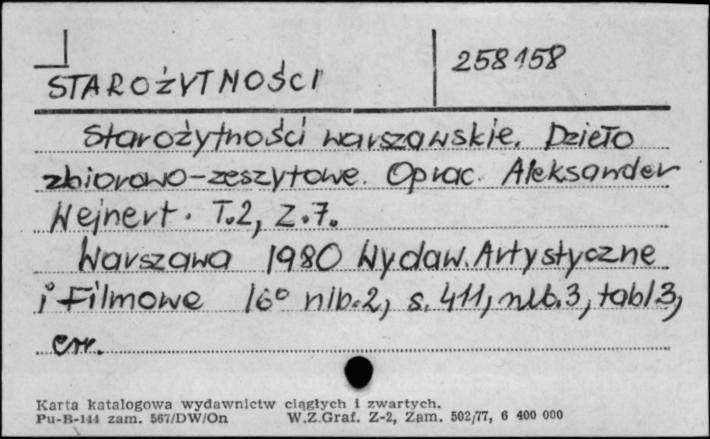 258158
STAROŻYTNOŚCI
Starożytności warszawskie. Dzieło
zbiorowo-zeszytowe. Oprac. Aleksander
Wejnert. T.2, Z.7.
Warszawa 1980 Wydaw. Artystyczne
i Filmowe 16° nlb.2, s. 411, nlb.3, tabl 3,
err.
Karta katalogowa wydawnictw ciągłych i zwartych.
Pu-B-144 zam. 567/DW/On W.Z.Graf. Z-2, Zam. 502/77, 6 400 000